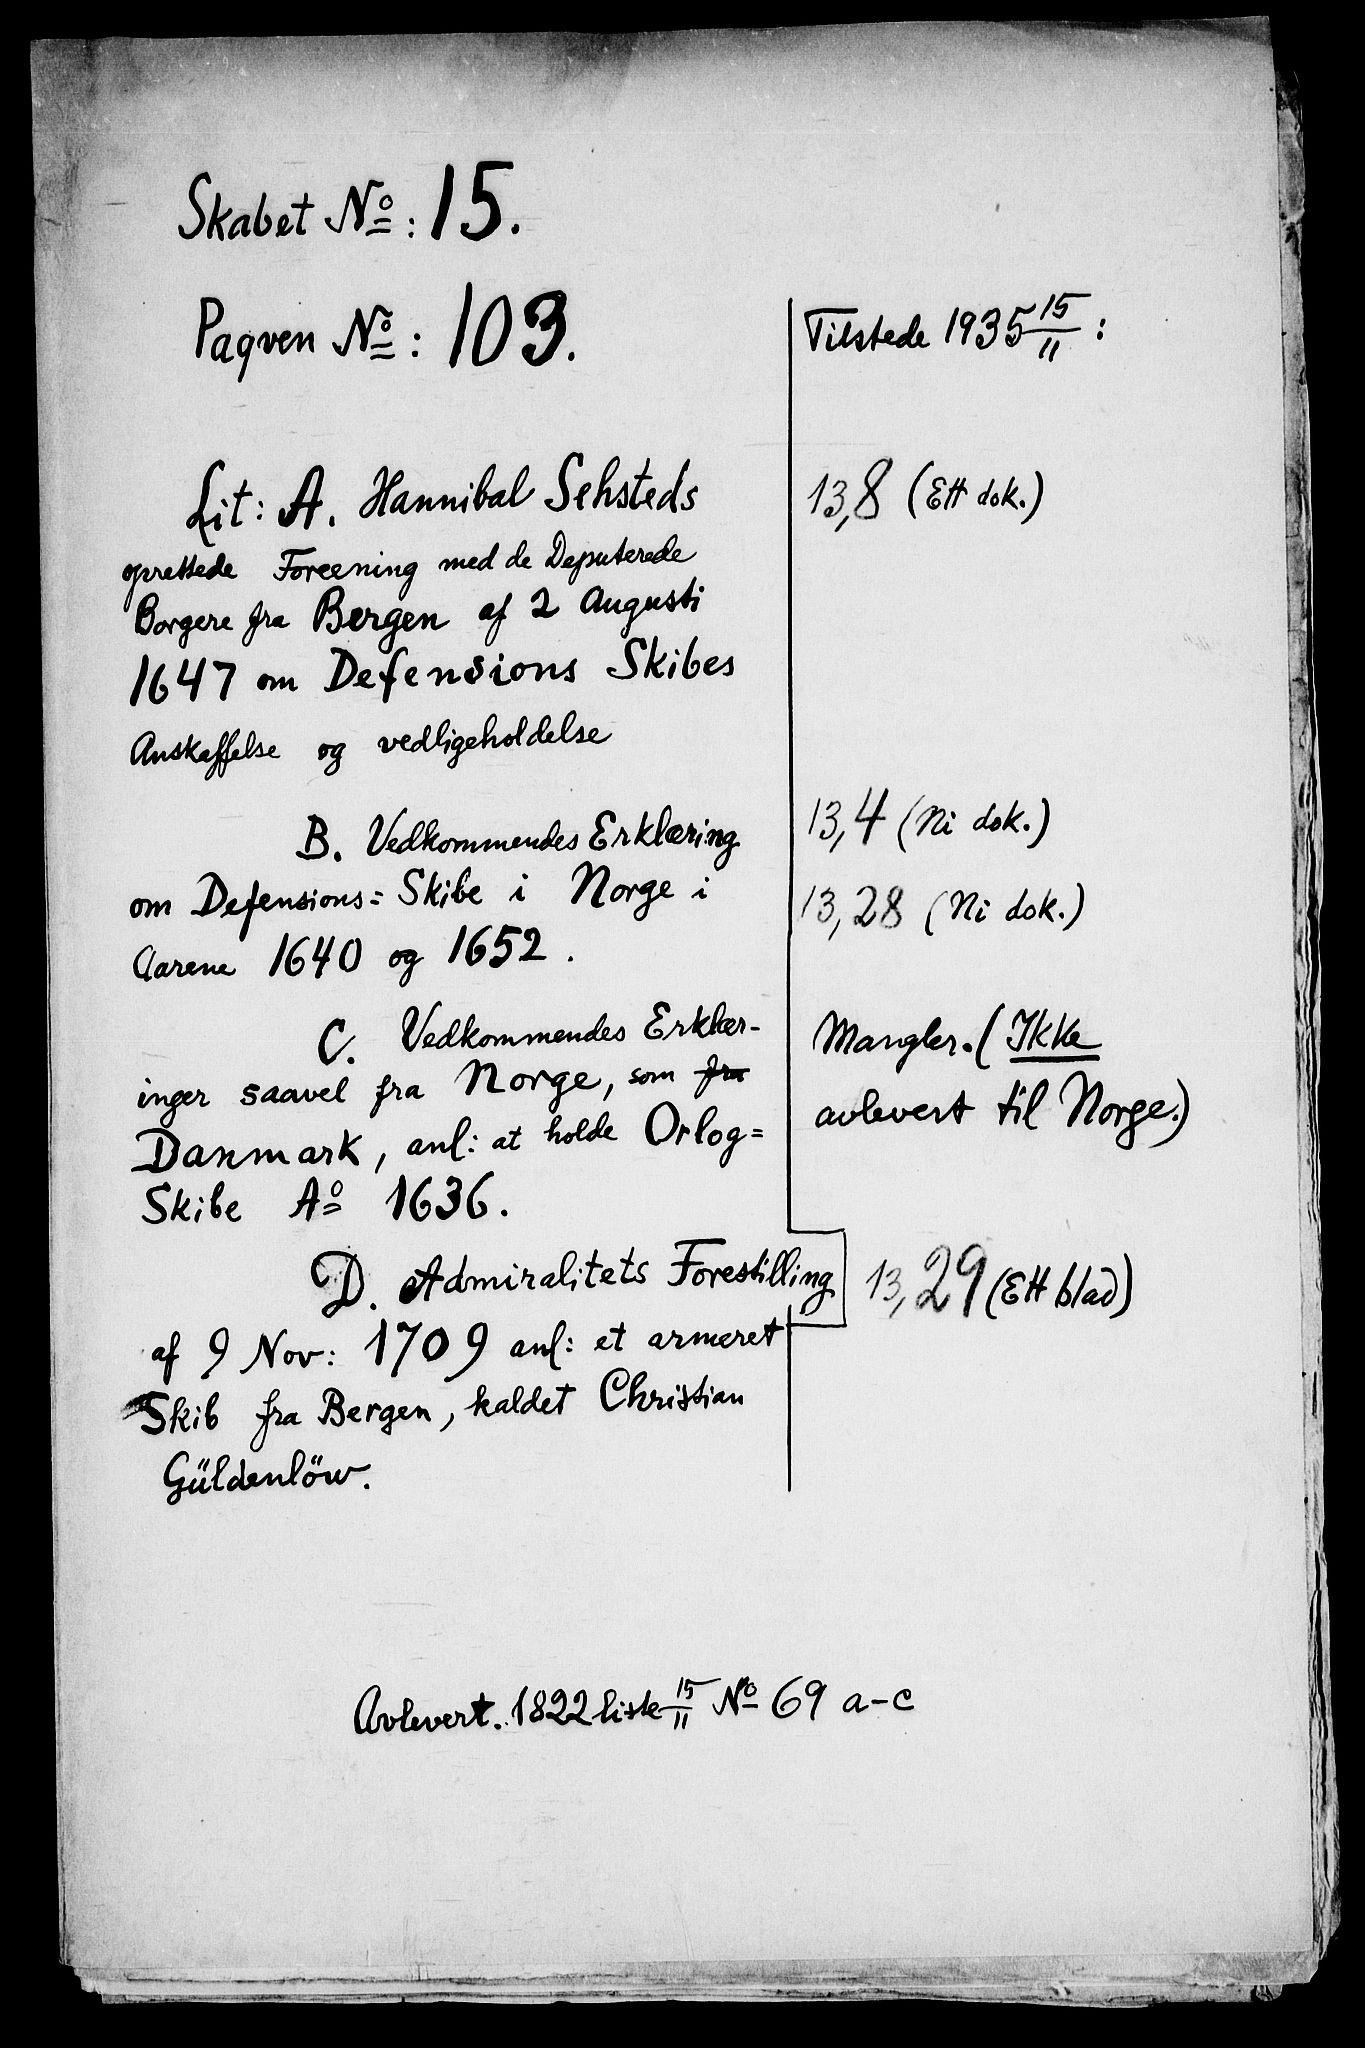 Skabet No: 15.
Paqven No: 103.
Tilstede 1935 15/11 :
Lit: A. Hannibal Sehsteds
oprettede Foreening med de Deputerede
Borgere fra Bergen af 2 Augusti
1647 om Defensions Skibes
Anskaffelse og vedligeholdelse
13,8 (Ett dok.)
B. Vedkommendes Erklæring
om Defensions= Skibe i Norge i
Aarene 1640 og 1652.
13,4 (Ni dok.)
13,28 (Ni dok.)
C. Vedkommendes Erklær-
inger saavel fra Norge, som fra
Danmark, anl: at holde Orlog=
Skibe Ao 1636.
Mangler. (Ikke
avlevert til Norge.)
D. Admiralitets Forestilling
af 9 Nov: 1709 anl: et armeret
Skib fra Bergen, kaldet Christian
Güldenlöw.
13,29 (Ett blad)
Avlevert. 1822 liste 15/11 No 69 a-c